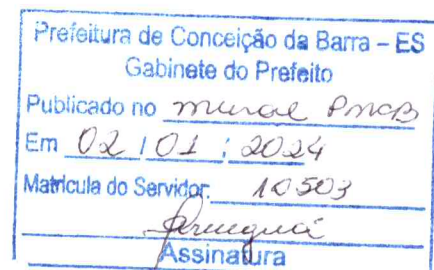 Prefeitura de Conceição da Barra – ES
Gabinete do Prefeito
Publicado no mural PMCB
Em 02 / 01 / 2024
Matricula do Servidor: 10503
Assinatura